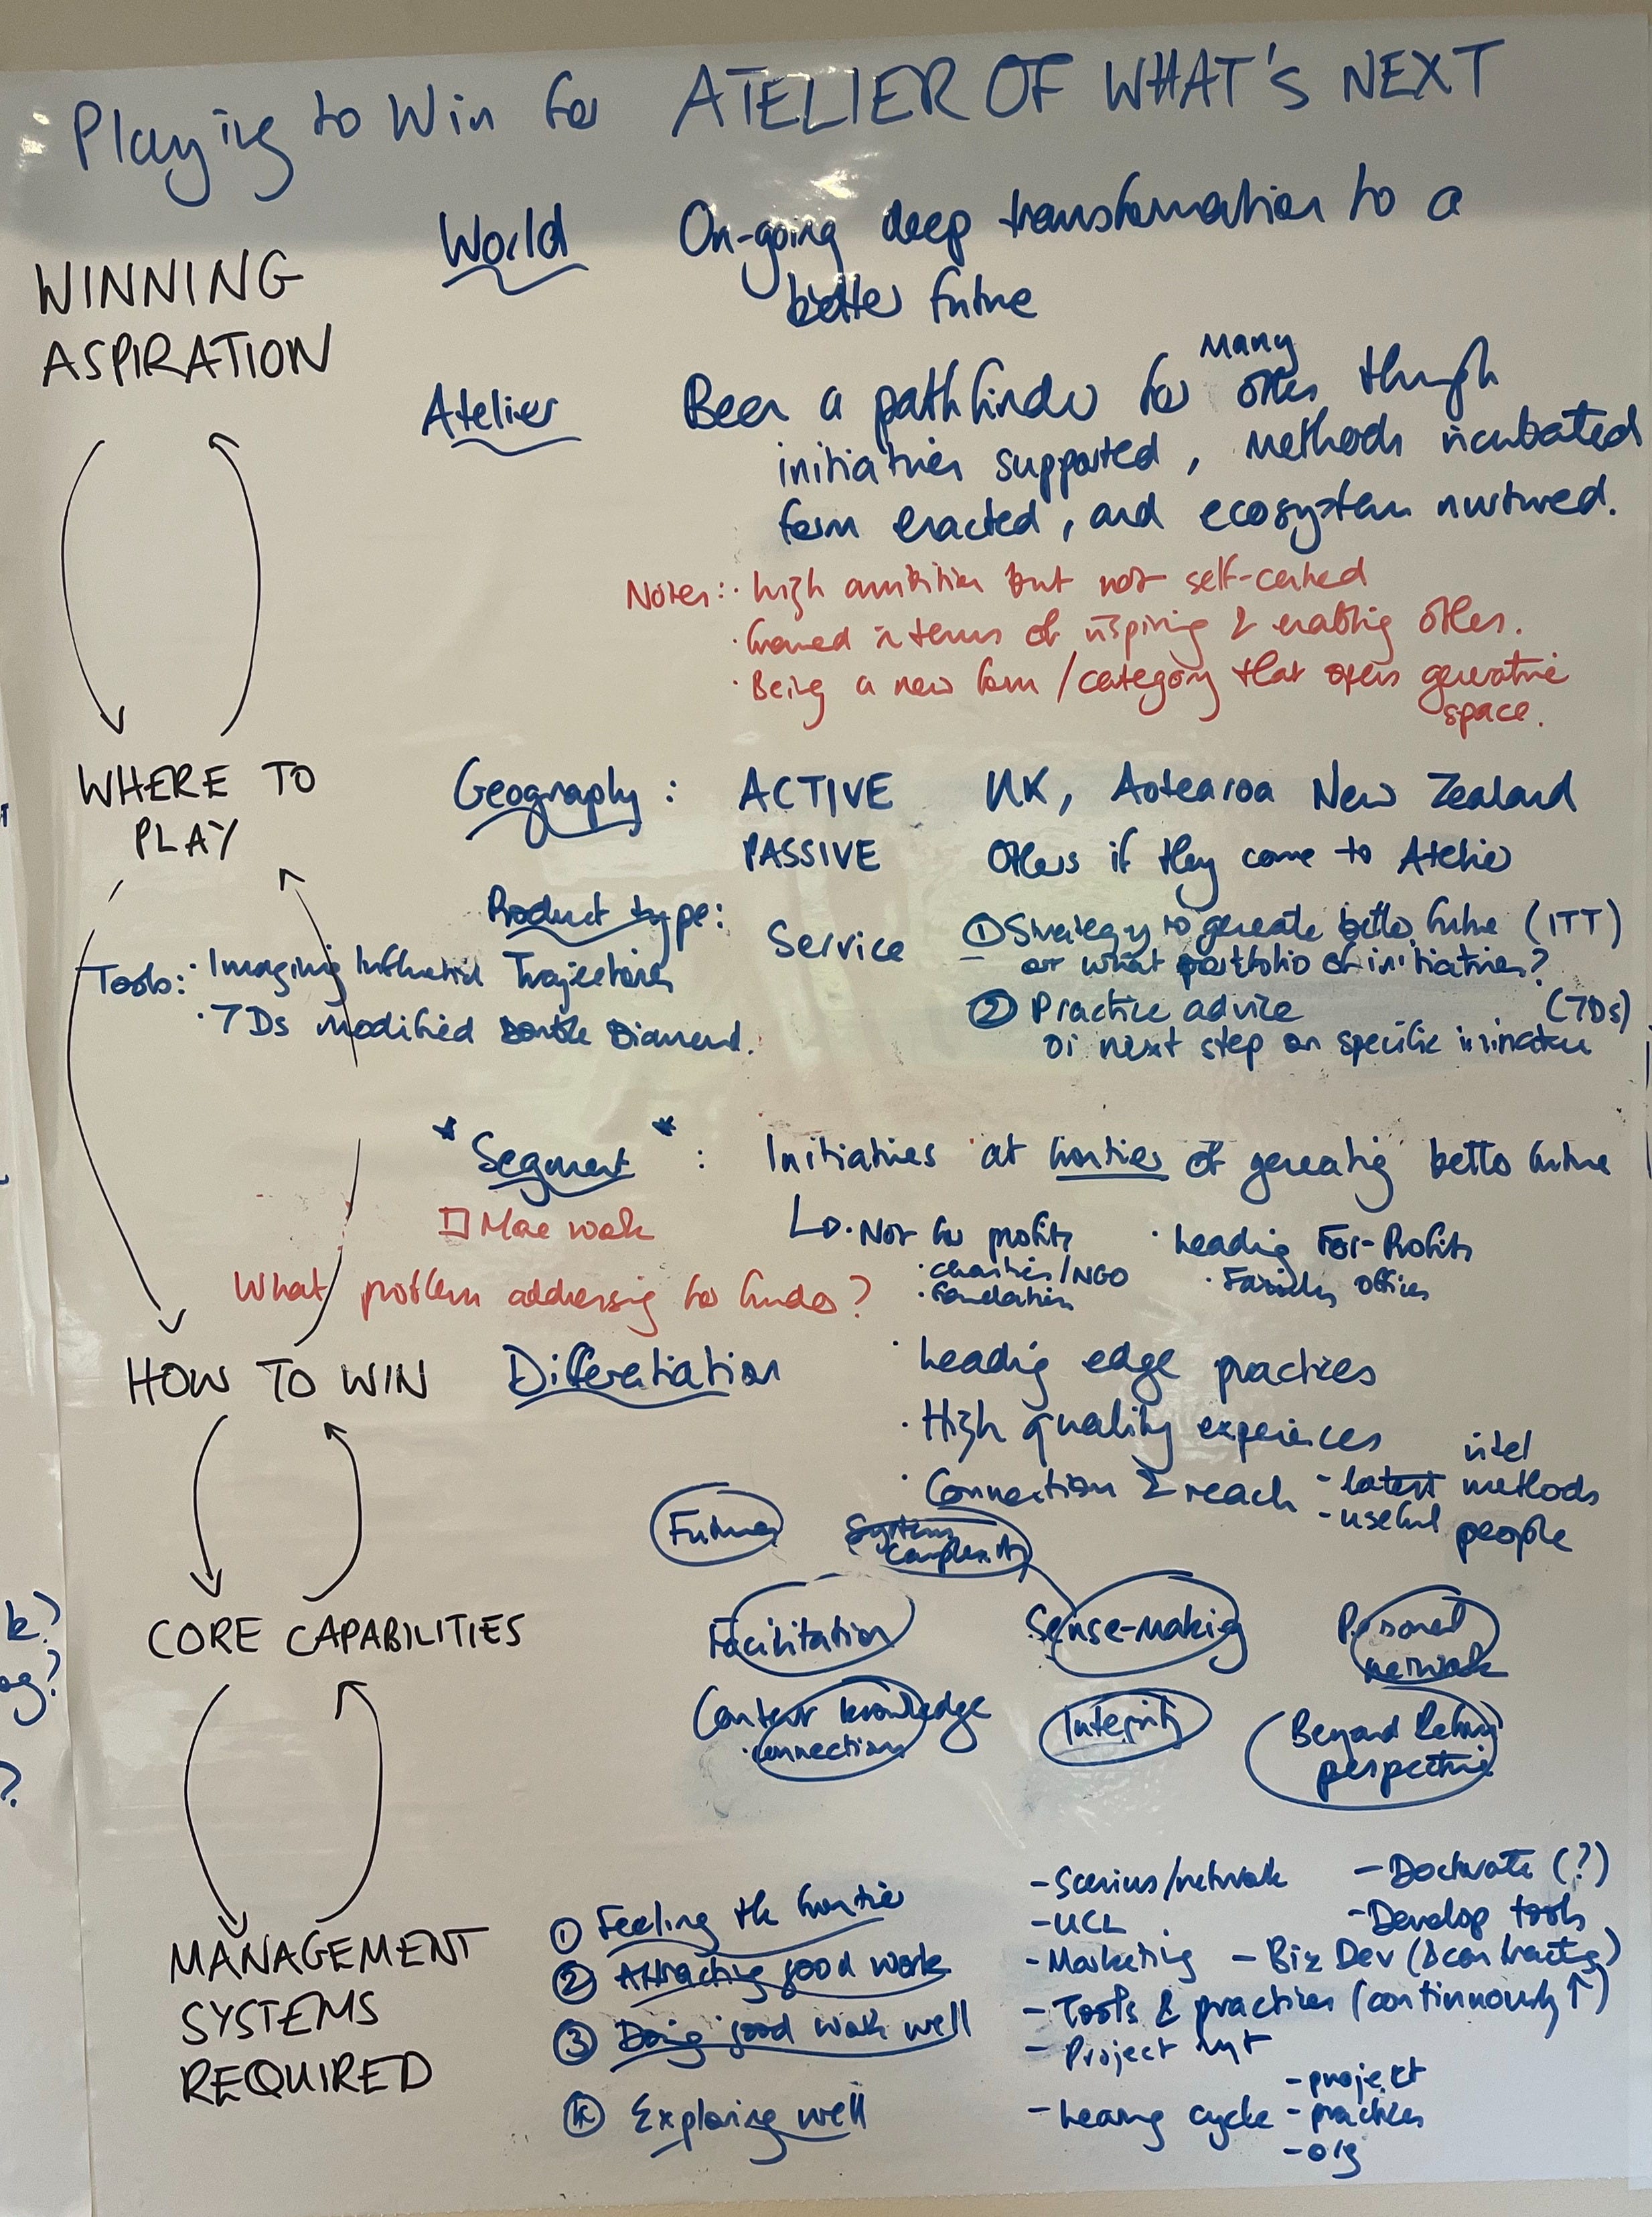 Playing to Win for ATELIER OF WHAT'S NEXT
WINNING
ASPIRATION
World
On-going deep transformation to a
better future
Atelier
Been a pathfinder for many others through
initiatives supported, methods incubated
form enacted, and ecosystem nurtured.
Notes: · high ambition but not self-centred
· framed in terms of inspiring & enabling others.
· Being a new form/category that offers generative
space.
WHERE TO
PLAY
Geography: ACTIVE UK, Aotearoa New Zealand
PASSIVE Others if they come to Atelier
Product type: Service
① Strategy to generate better future (ITT)
or what portfolio of initiatives?
② Practice advice (7Ds)
or next step on specific initiative
Tools: · Imaging Influential Trajectories
· 7Ds modified Double Diamond.
* Segment * : Initiatives at frontier of generating better future
More work
· Not for profits
· charities/NGO
· Foundation
· Leading For-Profits
· Family offices
What problem addressing for funder?
HOW TO WIN
Differentiation
· Leading edge practices
· High quality experiences
· Connection & reach - latest intel methods
- useful people
CORE CAPABILITIES
Futures
Systems
complexity
Facilitation
Sense-making
Personal
network
Context knowledge
· connections
Integrity
Beyond Reform
perspective
MANAGEMENT
SYSTEMS
REQUIRED
① Feeling the frontier
② Attracting good work
③ Doing good work well
④ Exploring well
- Scenius/network
- Doctorate (?)
- UCL
- Develop tools
- Marketing - Biz Dev (& contracting)
- Tools & practices (continuously ↑)
- Project mgt
- Learning cycle - project
- practices
- org
k?
?